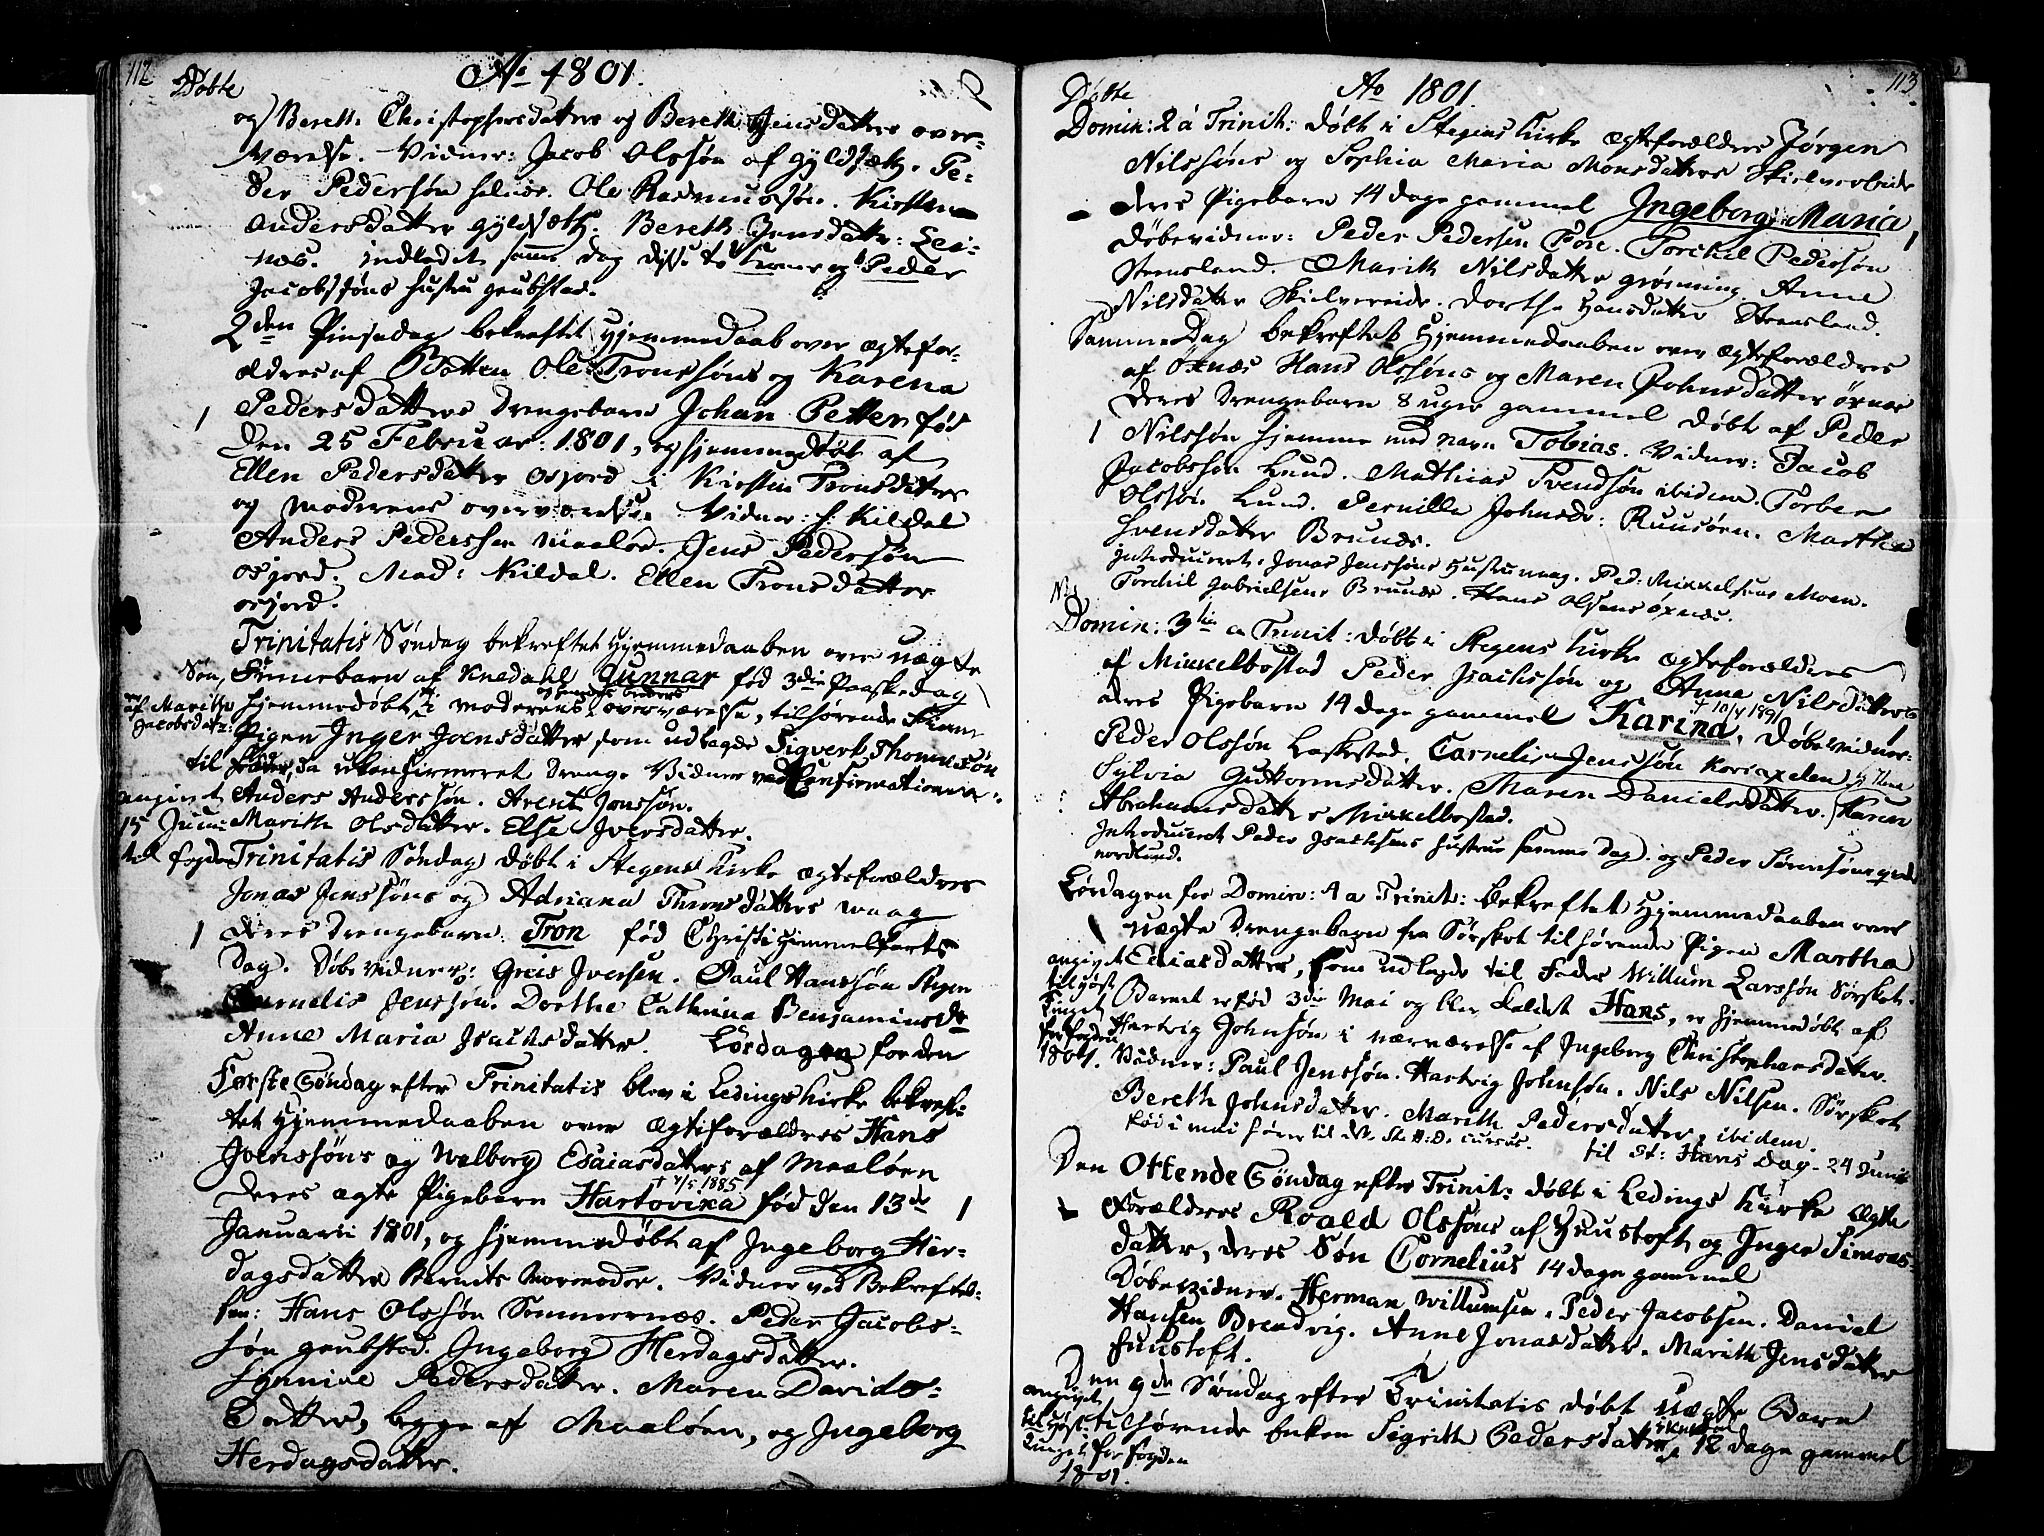 112
Døbte
Ao 1801.
og Bereth Christophersdatters og Bereth Jensdatters over-
værelse. Vidner: Jacob Olssøn af Gyldsæth. Pe-
der Pedersøn Ole Rasmussøn. Kirsten
Andersdatter Gyldsæth. Bereth Jensdatter: Lei-
næs. Indledet samme Dag disse to Koner og Peder
Jacobssøns Hustru Grubstad.
2den Pinsedag bekræftet Hjemmedaab over Ægtefor-
ældres af Botten Ole Tronssøns og Karena
1 Pedersdatters Drengebarn Johan Petter fød
den 25 Februar: 1801, og hjemmedøbt af
Ellen Pedersdatter Osjord i Kirsten Tronsdatters
og Moderens overværelse. Vidner: Hr. Kildal
Anders Pederssen Maaløe. Jens Pedersøn
Osjord. Mad: Kildal. Ellen Tronsdatter
Osjord.
Trinitatis Søndag bekreftet Hjemmedaaben over uægte
Søn, Finnebarn af Knedahl Gunnar fød 3die Paaskedag
af Marithe Jacobsdatr: hjemmedøbt i Moderens overværelse, tilhørende Finne
Pigen Inger Joensdatter som udlagde Sigvert Thomessøn
til Fader, da ukonfirmeret Dreng. Vidner ved Confirmationen:
angivet Anders Anderssøn. Arent Jonssøn.
15 Juni Marith Olsdatter. Else Iversdatter.
til fogden Trinitatis Søndag døbt i Stegens Kirke Ægteforældres
Jonas Jenssøns og Adriana Thronsdatters Waag
1 deres Drengebarn Tron fød Christi Himmelfarts
Dag. Døbevidner: Greis Iversen. Paul Hanssøn Stegen
Cornelis Jenssøn. Dorthe Cathrina Benjaminsdr
Anne Maria Isachsdatter. Lørdagen for den
Første Søndag efter Trinitatis blev i Ledings Kirke bekref-
tet Hjemmedaaben over Ægteforældres Hans
Joenssøns og Walborg Esaiasdatters af Maaløen
† 7/5 1885
deres ægte Pigebarn Hartovika fød den 13de 1
Januari 1801, og hjemmedøbt af Ingeborg Her-
dagsdatter Barnets Mormoder. Vidner ved Bekreftel-
sen: Hans Olssøn Sommernæs. Peder Jacobs-
søn Grubstad. Ingeborg Herdagsdatter.
Synnive Pedersdatter. Maren Davids-
Datter, begge af Maaløen, og Ingeborg
Herdagsdatter.
113
Døbte
Ao 1801.
Domin: 2 a Trinit: døbt i Stegens Kirke Ægteforældres Jørgen
Nilssøns og Sophia Maria Monsdatters Skielvereide
deres Pigebarn 14 dage gammel Ingeborg Maria 1
Døbevidner: Peder Pedersen Fore. Torchel Pedersøn
Steensland. Marith Nilsdatter Grøsning Anne
Nilsdatter Skielvereide. Dorthe Hansdatter Steensland.
Samme Dag bekreftet Hjemmedaaben over Ægteforældres
af Oxnæs Hans Olssøns og Maren Johnsdatter Øxnæs
deres Drengebarn 8 uger gammel døbt af Peder
1 Nilssøn hjemme med navn Tobias. Vidner: Jacob
Jacobssen Lund. Mathias Svendsøn ibidem. Torber
Olssøn Lund. Pernilla Johnsdr: Ruusøen. Marthe
Svensdatter Brunæs.
Introduceret: Jonas Jenssøns Hustru Waag. Ped: Mikkelsens Moen.
Torchil Gabrielsens Brunæs. Hans Olsens Øxnæs.
Domin: 3tia a Trinit: døbt i Stegens Kirke Ægteforældres
af Mikkelbostad Peder Isachssøn og Anne Nilsdatters
† 10/4 1891
deres Pigebarn 14 dage gammel Karina. Døbevidner:
Peder Olssøn Laskestad. Cornelis Jenssøn
Sylvia Guttormsdatter. Maren Danielsdatter. Karen
Abrahamsdatter Mikkelbostad.
Introduceret Peder Isachsens Hustru samme Dag og Peder Sørenssøns
Nordlund.
Lørdagen for Domin: 4 a Trinit: bekreftet Hjemmedaaben over
1 uægte Drengebarn fra Sørskot tilhørende Pigen Martha
angivet Eliasdatter, som udlagde til Fader Willum Larssøn Sørskot.
til Høst Barnet er fød 3die Mai og blev kaldet Hans, er hjemmedøbt af
Tinget Hartvig Johnsøn i nærværelse af Ingeborg Christophersdatter.
for fogden
1801. Vidner: Paul Jenssøn. Hartvig Johnsøn. Nils Nilsen. Sørskot
Bereth Johnsdatter. Marith Pedersdatter ibidem.
fød i Mai hører til
til St: Hans Dag 24 Junii
Den Ottende Søndag efter Trinit: døbt i Ledings Kirke Ægte
1 Forældres Roald Olssøns af Fuustoft og Inger Simons-
datter, deres Søn Cornelius 14 dage gammel
Døbevidner. Herman Willumsen. Peder Jacobsen. Daniel
Hansen Brendvig. Anne Jonasdatter. Marith Jensdatter
Fuustoft.
Den 9de Søndag efter Trinitatis døbt uægte Barn
angivet
til Høst- tilhørende Enken Sigrith Pedersdatter 12 dage gammel
Tinget for fogden
1801.